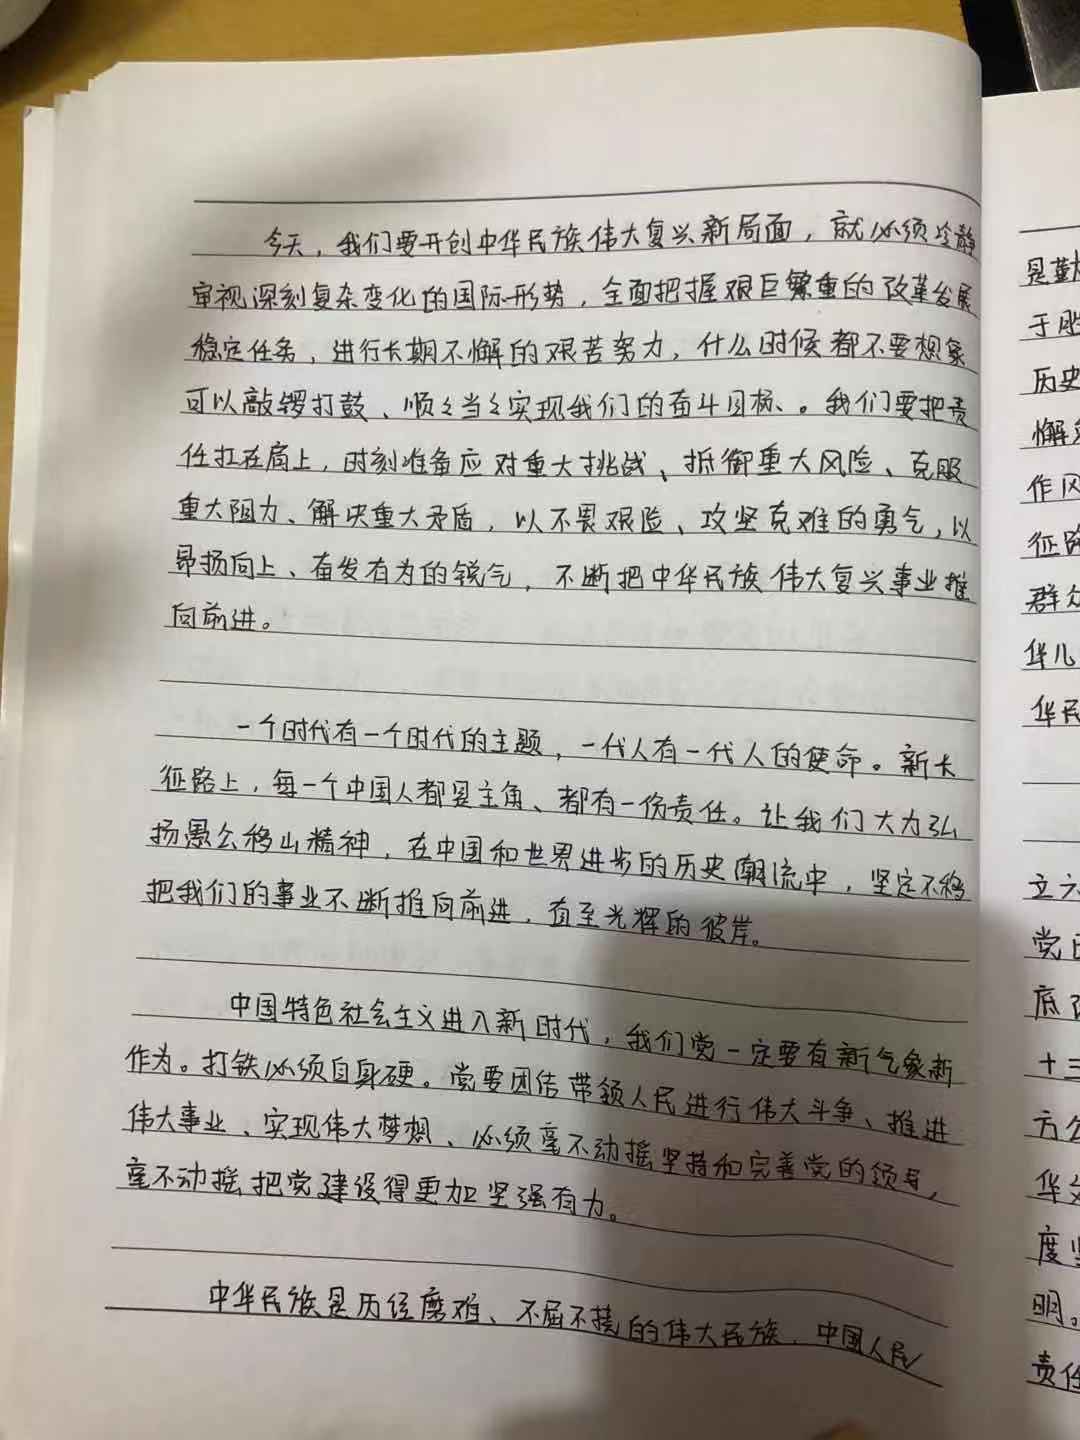 今天，我们要开创中华民族伟大复兴新局面，就必须冷静
审视深刻复杂变化的国际形势，全面把握艰巨繁重的改革发展
稳定任务，进行长期不懈的艰苦努力，什么时候都不要想象
可以敲锣打鼓、顺々当々实现我们的奋斗目标、。我们要把责
任扛在肩上，时刻准备应对重大挑战、抵御重大风险、克服
重大阻力、解决重大矛盾，以不畏艰险、攻坚克难的勇气，以
昂扬向上、奋发有为的锐气，不断把中华民族伟大复兴事业推
向前进。
一个时代有一个时代的主题，一代人有一代人的使命。新长
征路上，每一个中国人都是主角、都有一份责任。让我们大力弘
扬愚公移山精神，在中国和世界进步的历史潮流中，坚定不移
把我们的事业不断推向前进，直至光辉的彼岸。
中国特色社会主义进入新时代，我们党一定要有新气象新
作为。打铁必须自身硬。党要团结带领人民进行伟大斗争、推进
伟大事业、实现伟大梦想、必须毫不动摇坚持和完善党的领导，
毫不动摇把党建设得更加坚强有力。
中华民族是历经磨难、不屈不挠的伟大民族，中国人民
是勤
于
历史
懈
作风
征路
群众
华儿
华民
立
党
底
十三
方
华
度
明。
责任